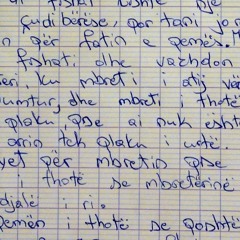 çudi bërëse, por tani jo
për fatin e pemës.
fshati dhe vazhdon
ku mbreti i atij
dhe mbreti i thotë
plaku pse ai nuk është
arrin tek plaku i
për mbretin pse
i thotë se mbretërinë
djalë i ri.
pemën i thotë se poshtë